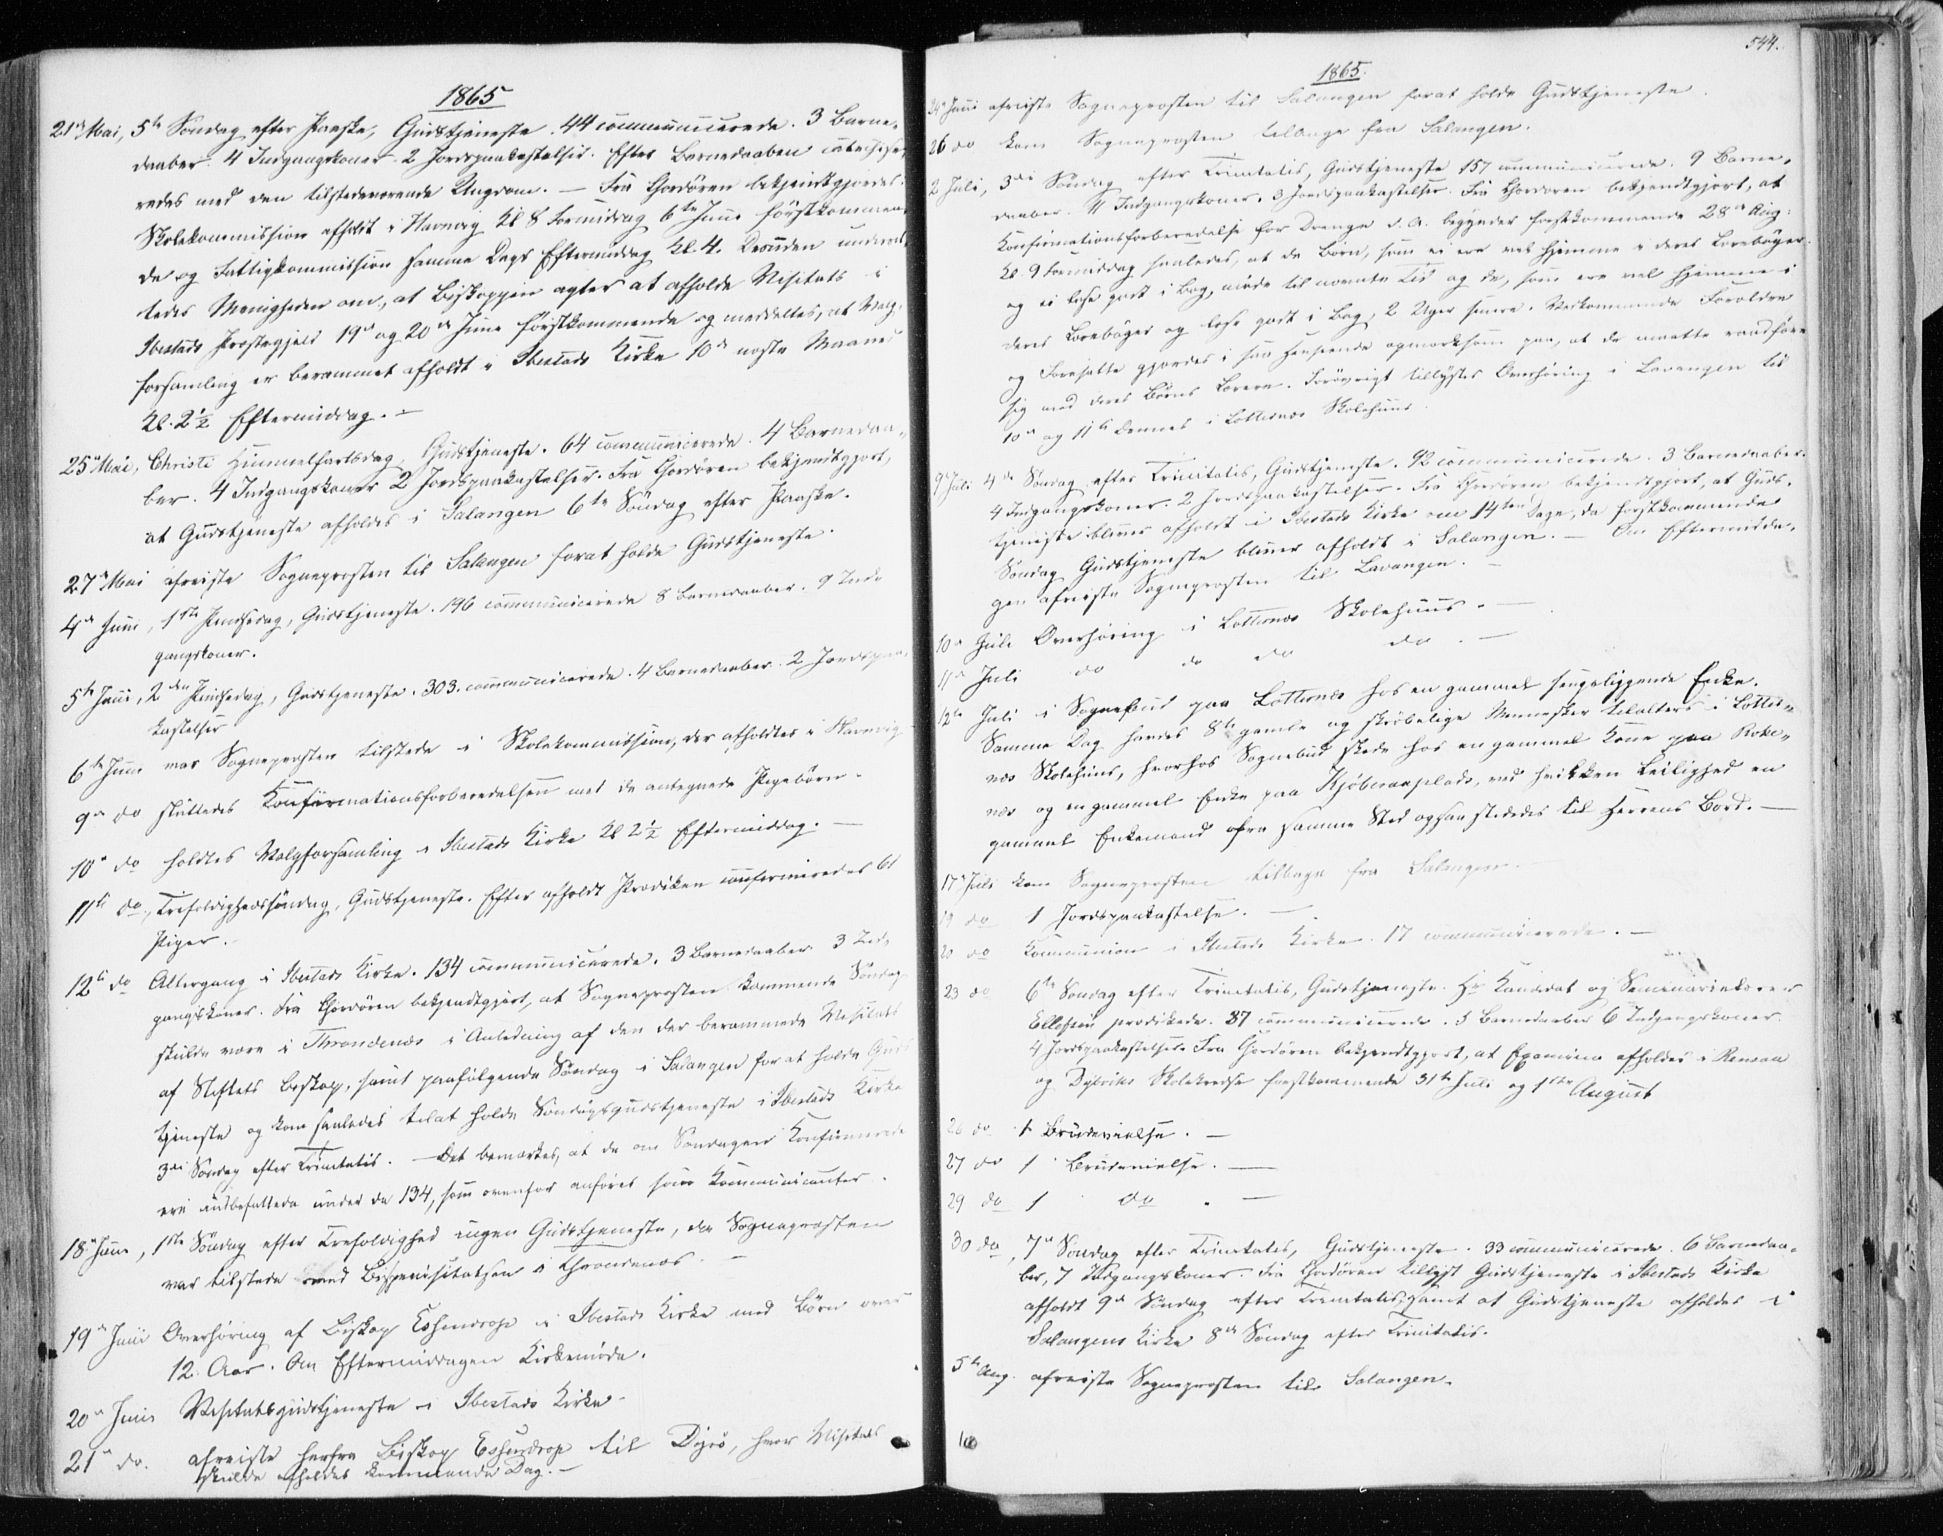 1865
21de Mai, 5te Søndag efter Paaske, Gudstjeneste. 44 communicerede. 3 Barne-
daaber. 4 Indgangskoner. 2 Jordspaakastelser. Efter Barnedaaben catechise-
redes med den tilstedeværende Ungdom. — Fra Chordøren bekjendtgjordes
Skolekommission afholdt i Havnvig Kl 8 Formiddag 6te Juni førstkommen-
de og Fattigkommission samme Dags Eftermiddag Kl. 4. Desuden underret-
tedes Menigheden om, at Biskoppen agter at afholde Visitats i
Ibestads Præstegjeld 19de og 20de Juni førstkommende og meddeltes, at Valg-
forsamling er berammet afholdt i Ibestads Kirke 10de næste Maaned
Kl. 2½ Eftermiddag. —
25de Mai, Christi Himmelfartsdag, Gudstjeneste. 64 communicerede. 4 Barnedaa-
ber. 4 Indgangskoner 2 Jordspaakastelser. Fra Chordøren bekjendtgjort,
at Gudstjeneste afholdes i Salangen 6te Søndag efter Paaske.
27de Mai afreiste Sogneprosten til Salangen forat holde Gudstjeneste.
4de Juni, 1ste Pintsedag, Gudstjeneste. 196 communicerede 8 Barnedaaber. 9 Ind-
gangskoner.
5te Juni, 2den Pintsedag, Gudstjeneste. 303 communicerede. 4 Barnedaaber. 2 Jordspaa-
kastelser
6te Juni var Sogneprosten tilstede i Skolekommission, der afholdtes i Havnvig
9de do sluttedes Konfirmationsforberedelsen med de antegnede Pigebørn.
10de do holdtes Valgforsamling i Ibestads Kirke Kl 2½ Eftermiddag. —
11te do, Trefoldighedssøndag, Gudstjeneste. Efter afholdt Prædiken confirmeredes 61
Piger.
12te do Altergang i Ibestads Kirke. 134 communicerede. 3 Barnedaaber 3 Ind-
gangskoner. Fra Chordøren bekjendtgjort, at Sogneprosten kommende Søndag
skulde være i Throndenæs i Anledning af den der berammede Visitats
af Stiftets Biskop, samt paafølgende Søndag i Salangen forat holde Guds-
tjeneste og kom saaledes til at holde Søndagsgudstjeneste i Ibestads Kirke
3die Søndag efter Trinitatis. — Det bemærkes, at de om Søndagen Konfirmerede
ere indbefattede under de 134, som ovenfor anføres som Kommunicanter.
18de Juni, 1ste Søndag efter Trefoldighed ingen Gudstjeneste, da Sogneprosten
var tilstede med Bispevisitatsen i Throndenæs. —
19de Juni Overhøring af Biskop Essendrop i Ibestads Kirke med Børn over
12 Aar. Om Eftermiddagen Kirkemøde.
20de Juni Visitatsgudstjeneste i Ibestads Kirke
21de do. afreiste herfra Biskop Essendrop til Dyrø, hvor Visitats
skulde afholdes kommende Dag. —
544.
1865.
24de Juni afreiste Sogneprosten til Salangen forat holde Gudstjeneste.
26 do kom Sogneprosten tilbage fra Salangen.
2 Juli, 3die Søndag efter Trinitatis, Gudstjeneste 157 communicerede. 9 Barne-
daaber. 4 Indgangskoner. 3 Jordspaakastelser. Fra Chordøren bekjendtgjort, at
Konfirmationsforberedelse for Drenge d. A. begynder førstkommende 28de Aug.
Kl. 9 Formiddag saaledes, at de Børn, som ei ere vel hjemme i deres Lærebøger
og ei læse godt i Bog, møde til nævnte Tid og de, som ere vel hjemme i
deres Lærebøger og læse godt i Bog, 2 Uger senere. Vedkommende Forældre
og Foresatte gjordes i saa Henseende opmærksom paa, at de maatte raadføre
sig med deres Børns Lærere. Forøvrigt tillystes Overhøring i Lavangen til
10de og 11te dennes i Lottenæs Skolehuus.
9de Juli 4de Søndag efter Trinitatis, Gudstjeneste. 92 communicerede. 3 Barnedaaber.
4 Indgangskoner. 2 Jordspaakastelser. Fra Chordøren bekjendtgjort, at Guds-
tjeneste bliver afholdt i Ibestads Kirke om 14ten Dage, da førstkommende
Søndag Gudstjeneste bliver afholdt i Salangen. — Om Eftermidda-
gen afreiste Sogneprosten til Lavangen. —
10de Juli Overhøring i Lottenæs Skolehuus. —
11te Juli do do do do. —
12te Juli i Sognebud paa Lottenæs hos en gammel sengeliggende Enke.
Samme Dag havdes 8te gamle og skrøbelige Mennesker tilalters i Lotte-
næs Skolehuus, hvorhos Sognebud skede hos en gammel Kone paa Roke-
næs og en gammel Enke paa Kjøbmanspladz, ved hvilken Leilighed en
gammel Enkemand fra samme Sted ogsaa stededes til Herrens Bord. —
17de Juli kom Sogneprosten tilbage fra Salangen. —
19 do 1 Jordspaakastelse. —
20 do Kommunion i Ibestads Kirke. 17 communicerede. —
23 do 6te Søndag efter Trinitatis, Gudstjeneste. Hr Kandidat og Seminarielærer
Ellefsen prædikede. 87 communicerede. 5 Barnedaaber 6 Indgangskoner
4 Jordspaakastelser. Fra Chordøren bekjendtgjort, at Examina afholdes i
og Skolekredse førstkommende 31te Juli og 1ste August
26 do 1 Brudevielse. —
27 do 1 Brudevielse. —
29 do 1 do. —
30 do, 7de Søndag efter Trinitatis, Gudstjeneste. 33 communicerede. 6 Barnedaa-
ber, 7 Indgangskoner. Fra Chordøren tillyst Gudstjeneste i Ibestads Kirke
afholdt 9de Søndag efter Trinitatis, samt at Gudstjeneste afholdes i
Salangens Kirke 8de Søndag efter Trinitatis.
5te Aug. afreiste Sogneprosten til Salangen.